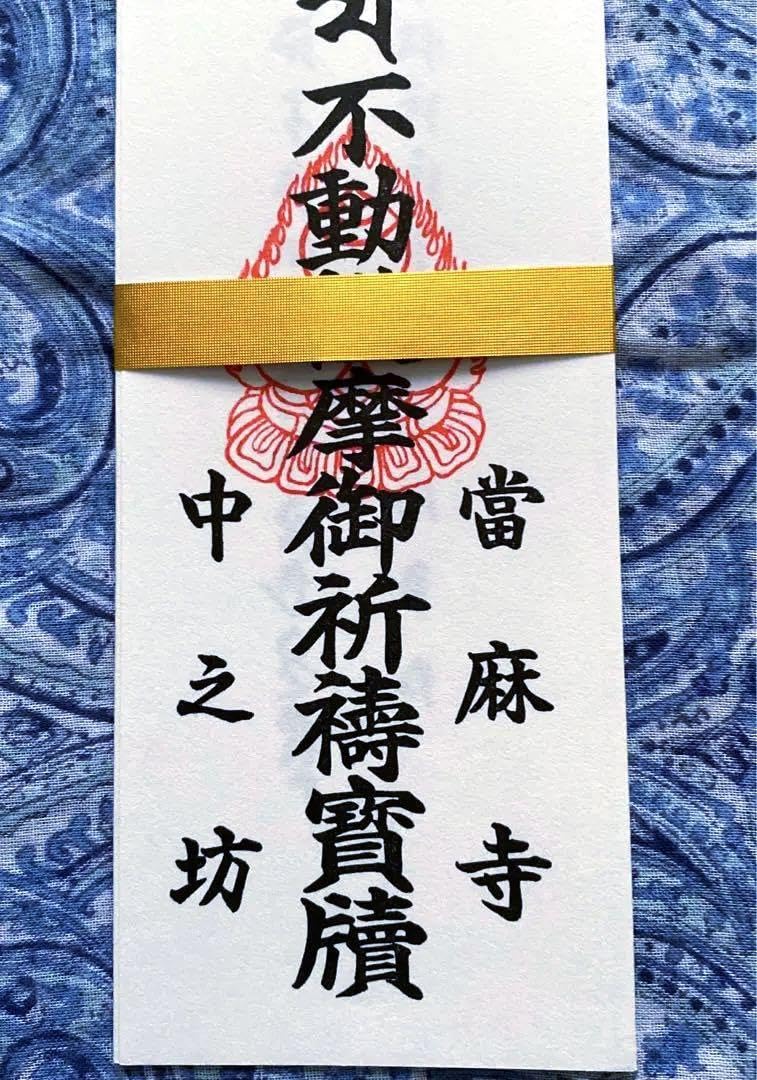 當麻寺
不動護摩御祈禱寶牘
中之坊